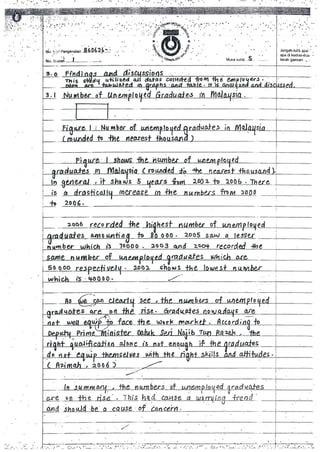 No. K.P/ Pengenalan: 860625-
No. Giliran: 1
Muka surat: 5
Jangan tulis apa-apa di kedua-dua belah garisan
3.0 Findings and discussions
This study utilised all datas collected from the employers.
Data are tabulated in graphs and table. It is analysed and discussed.
3.1 Number of Unemployed Graduates in Malaysia.
Figure 1 : Number of unemployed graduates in Malaysia
(rounded to the nearest thousand)
Figure 1 shows the number of unemployed
graduates in Malaysia (rounded to the nearest thousand).
In general, it shows 5 years from 2002 to 2006. There
is a drastically increase in the numbers from 2003
to 2006.
2006 recorded the highest number of unemployed
graduates amounting to 80 000. 2005 saw a lesser
number which is 70000. 2003 and 2004 recorded the
same number of unemployed graduates which are
50 000 respectively. 2002 shows the lowest number
which is 40000.
As we can clearly see, the numbers of unemployed
graduates are on the rise. Graduates nowadays are
not well equip to face the work market. According to
Deputy Prime Minister Datuk Seri Najib Tun Razak, the
right qualification alone is not enough if the graduates
do not equip themselves with the right skills and attitudes.
(Azimah, 2006)
In summary, the numbers of unemployed graduates
are on the rise. This had cause a worrying trend
and should be a cause of concern.